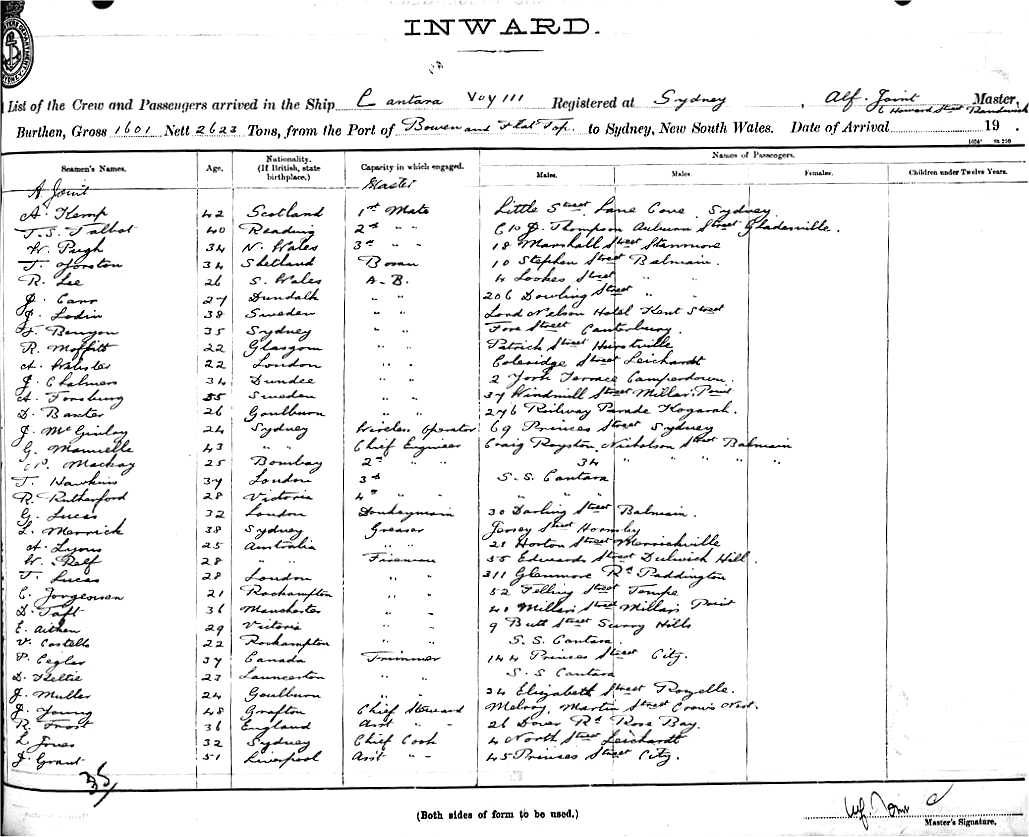 INWARD.
List of the Crew and Passengers arrived in the Ship Cantara Voy 111 Registered at Sydney, Alf. Joint Master,
6 Howard Street Randwick
Burthen, Gross 1601 Nett 2623 Tons, from the Port of Bowen and Flat Top to Sydney, New South Wales. Date of Arrival 19 .
Names of Passengers.
Seamen's Names. Age. Nationality. (If British, state birthplace.) Capacity in which engaged. Males. Males. Females. Children under Twelve Years.
A Joint Master
A. Kemp 42 Scotland 1st Mate Little Street Lane Cove Sydney
T. S. Talbot 40 Reading 2nd " " C/o J. Thompson Auburn Street Gladesville.
W. Pugh 34 N. Wales 3rd " " 18 Marshall Street Stanmore
T. Forston 34 Shetland Bosun 10 Stephen Street Balmain.
R. Lee 26 S. Wales A.B. 4 Lookes Street " "
J. Carr 27 Dundalk " " 206 Dowling Street " "
J. Lodin 38 Sweden " " Lord Nelson Hotel Kent Street
F. Benyon 35 Sydney " " Fore Street Canterbury.
R. Moffitt 22 Glasgow " " Patrick Street Hurstville
A. Walster 22 London " " Coleridge Street Leichardt
J. Chalmers 34 Dundee " " 2 York Terrace Camperdown.
A. Forsburg 55 Sweden " " 37 Windmill Street Millers Point
D. Banter 26 Goulburn " " 276 Railway Parade Kogarah.
J. McGinlay 24 Sydney Wireless Operator 69 Princes Street Sydney
G. Manuelle 43 " " Chief Engineer Craig Royston, Nicholson Street Balmain
P. Mackay 25 Bombay 2nd " " 34 " " "
T. Hawkins 37 London 3rd S.S. Cantara
R. Rutherford 28 Victoria 4th " " " " "
G. Lucas 32 London Donkeyman 30 Darling Street Balmain.
L. Merrick 38 Sydney Greaser Jersey Street Hornsby
A. Lyons 25 Australia " " 21 Horton Street Marrickville
W. Relf 28 " " Fireman 55 Edward Street Dulwich Hill.
T. Lucas 28 London " " 311 Glenmore Rd Paddington
C. Jorgensen 21 Rockhampton " " 52 Felling Street Tempe
D. Taft 36 Manchester " " 40 Millers Street Millers Point
E. Aitken 29 Victoria " " 9 Butt Street Surry Hills
V. Costello 22 Rockhampton " " S.S. Cantara.
P. Cegler 37 Canada Trimmer 144 Princes Street City.
D. Keltie 23 Launceston " " S.S Cantara
J. Muller 24 Goulburn " " 34 Elizabeth Street Rozelle.
J. Young 48 Grafton Chief Steward Melroy, Martin Street Crows Nest.
R. Frost 36 England Asst " " 26 Dover Rd Rose Bay.
L. Jones 32 Sydney Chief Cook 4 North Street Leichardt
J. Grant 51 Liverpool Asst " " 45 Princes Street City.
35
(Both sides of form to be used.)
Master's Signature.